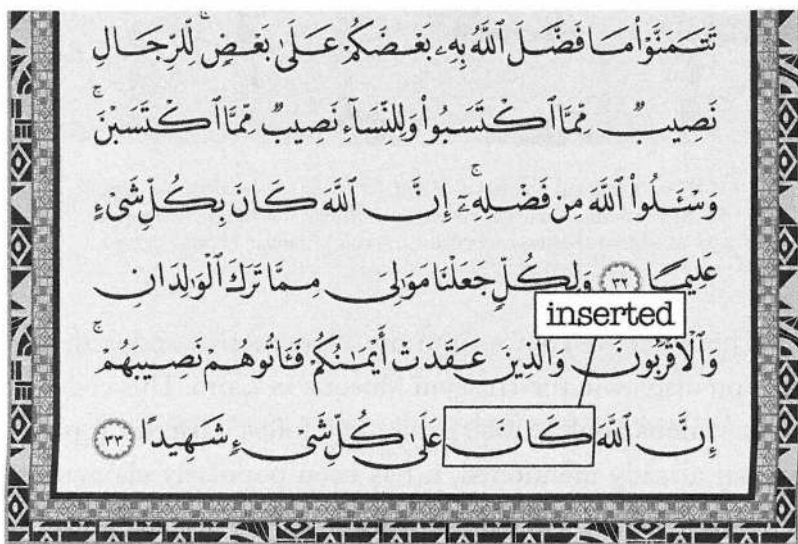 تَتَمَنَّوْا۟ مَا فَضَّلَ ٱللَّهُ بِهِۦ بَعْضَكُمْ عَلَىٰ بَعْضٍ ۚ لِّلرِّجَالِ
نَصِيبٌ مِّمَّا ٱكْتَسَبُوا۟ وَلِلنِّسَآءِ نَصِيبٌ مِّمَّا ٱكْتَسَبْنَ ۚ
وَسْـَٔلُوا۟ ٱللَّهَ مِن فَضْلِهِۦٓ ۗ إِنَّ ٱللَّهَ كَانَ بِكُلِّ شَىْءٍ
عَلِيمًا ٣٢ وَلِكُلٍّ جَعَلْنَا مَوَٰلِىَ مِمَّا تَرَكَ ٱلْوَٰلِدَانِ
inserted
وَٱلْأَقْرَبُونَ ۚ وَٱلَّذِينَ عَقَدَتْ أَيْمَـٰنُكُمْ فَـَٔاتُوهُمْ نَصِيبَهُمْ ۚ
إِنَّ ٱللَّهَ كَانَ عَلَىٰ كُلِّ شَىْءٍ شَهِيدًا ٣٣